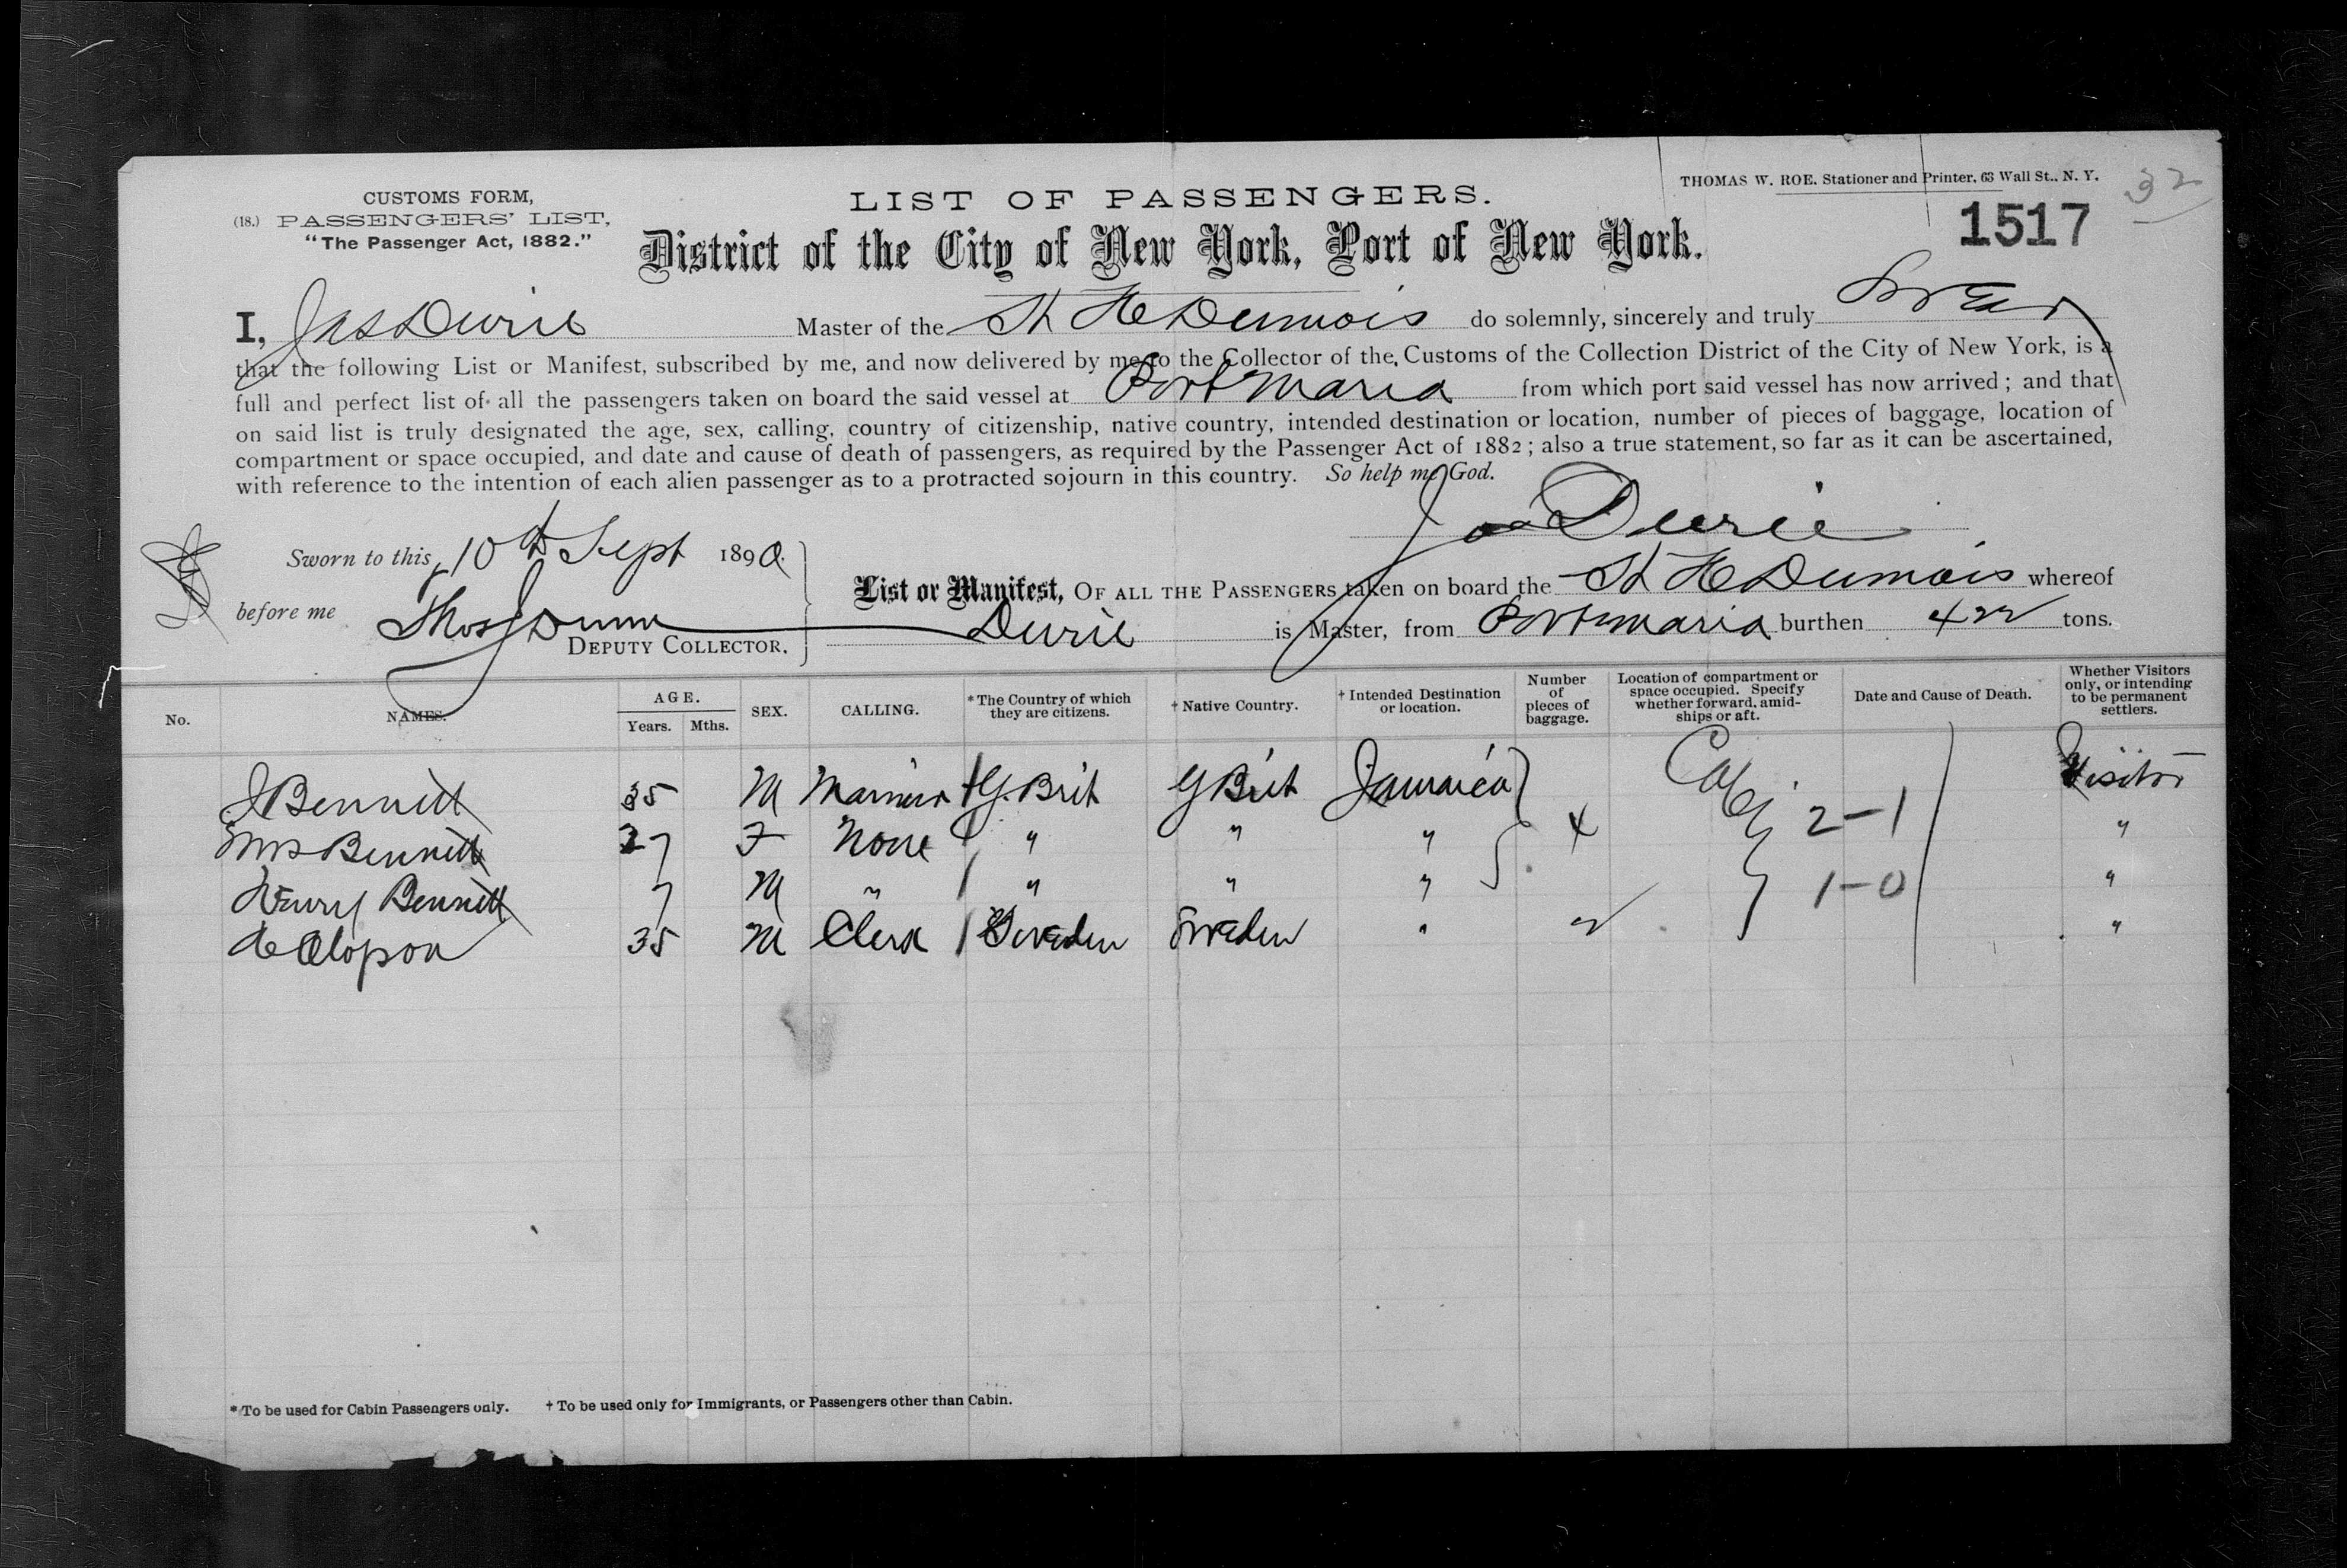 CUSTOMS FORM,
(18.) PASSENGERS' LIST,
"The Passenger Act, 1882."
LIST OF PASSENGERS.
THOMAS W. ROE. Stationer and Printer, 63 Wall St., N. Y.
32
1517
District of the City of New York, Port of New York.
I, Jas Durie Master of the St H Dumois do solemnly, sincerely and truly swear
that the following List or Manifest, subscribed by me, and now delivered by me to the Collector of the Customs of the Collection District of the City of New York, is a
full and perfect list of all the passengers taken on board the said vessel at Port Maria from which port said vessel has now arrived; and that
on said list is truly designated the age, sex, calling, country of citizenship, native country, intended destination or location, number of pieces of baggage, location of
compartment or space occupied, and date and cause of death of passengers, as required by the Passenger Act of 1882; also a true statement, so far as it can be ascertained,
with reference to the intention of each alien passenger as to a protracted sojourn in this country. So help me God.
Jas Durie
Sworn to this 10th Sept 1890.
before me Thos J Dunn
DEPUTY COLLECTOR.
List or Manifest, OF ALL THE PASSENGERS taken on board the St H Dumois whereof
Durie is Master, from Port Maria burthen 422 tons.
No. NAMES. AGE. Years. Mths. SEX. CALLING. * The Country of which they are citizens. † Native Country. † Intended Destination or location. Number of pieces of baggage. Location of compartment or space occupied. Specify whether forward, amidships or aft. Date and Cause of Death. Whether Visitors only, or intending to be permanent settlers.
J Bennett 35 M Mariner G. Brit G Brit Jamaica Visitor
Mrs Bennett 27 F None " " " 4 2-1 "
Henry Bennett 7 M " " " " 1-0 "
35 M Clerk Sweden Sweden " 2 "
* To be used for Cabin Passengers only. † To be used only for Immigrants, or Passengers other than Cabin.